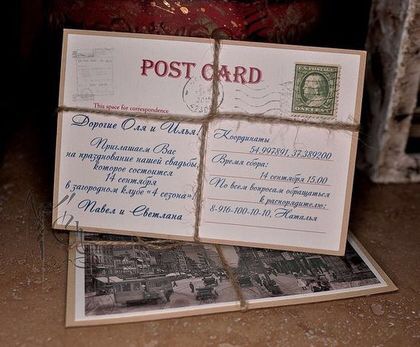 POST CARD
This space for correspondence
Дорогие Оля и Илья!
Приглашаем Вас
на празднование нашей свадьбы,
которое состоится
14 сентября
в загородном клубе "4 сезона".
Павел и Светлана
Координаты
54.997891, 37.389200
Время сбора:
14 сентября 15.00
По всем вопросам обращаться
к распорядителю:
8-916-100-10-10, Наталья